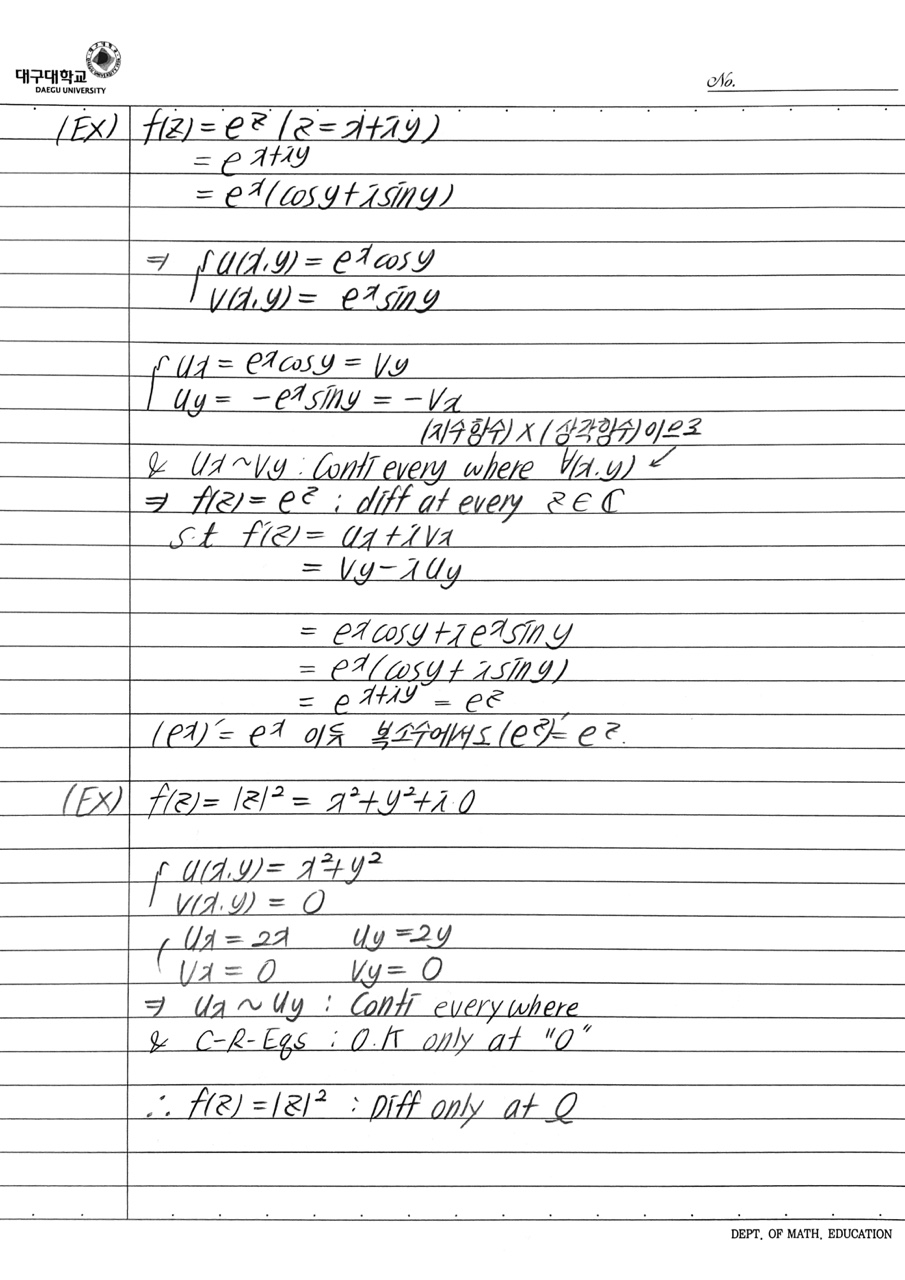 대구대학교
DAEGU UNIVERSITY
No.
(EX) f(z) = e^z (z = x+iy)
= e^{x+iy}
= e^x(cosy + isiny)
⇒ { u(x,y) = e^x cosy
v(x,y) = e^x siny
{ ux = e^x cosy = Vy
uy = -e^x siny = -Vx
(지수함수) X (삼각함수)이므로
& ux ~ Vy : Conti every where ∀(x,y) ↙
⇒ f(z) = e^z : diff at every z ∈ ℂ
s.t f'(z) = ux + iVx
= Vy - iuy
= e^x cosy + i e^x siny
= e^x(cosy + isiny)
= e^{x+iy} = e^z
(e^x)' = e^x 이듯 복소수에서도 (e^z)' = e^z.
(EX) f(z) = |z|² = x² + y² + i·0
{ u(x,y) = x² + y²
v(x,y) = 0
{ ux = 2x uy = 2y
Vx = 0 Vy = 0
⇒ ux ~ uy : Conti everywhere
& C-R-Eqs : O.K only at "0"
∴ f(z) = |z|² : Diff only at 0
DEPT. OF MATH. EDUCATION